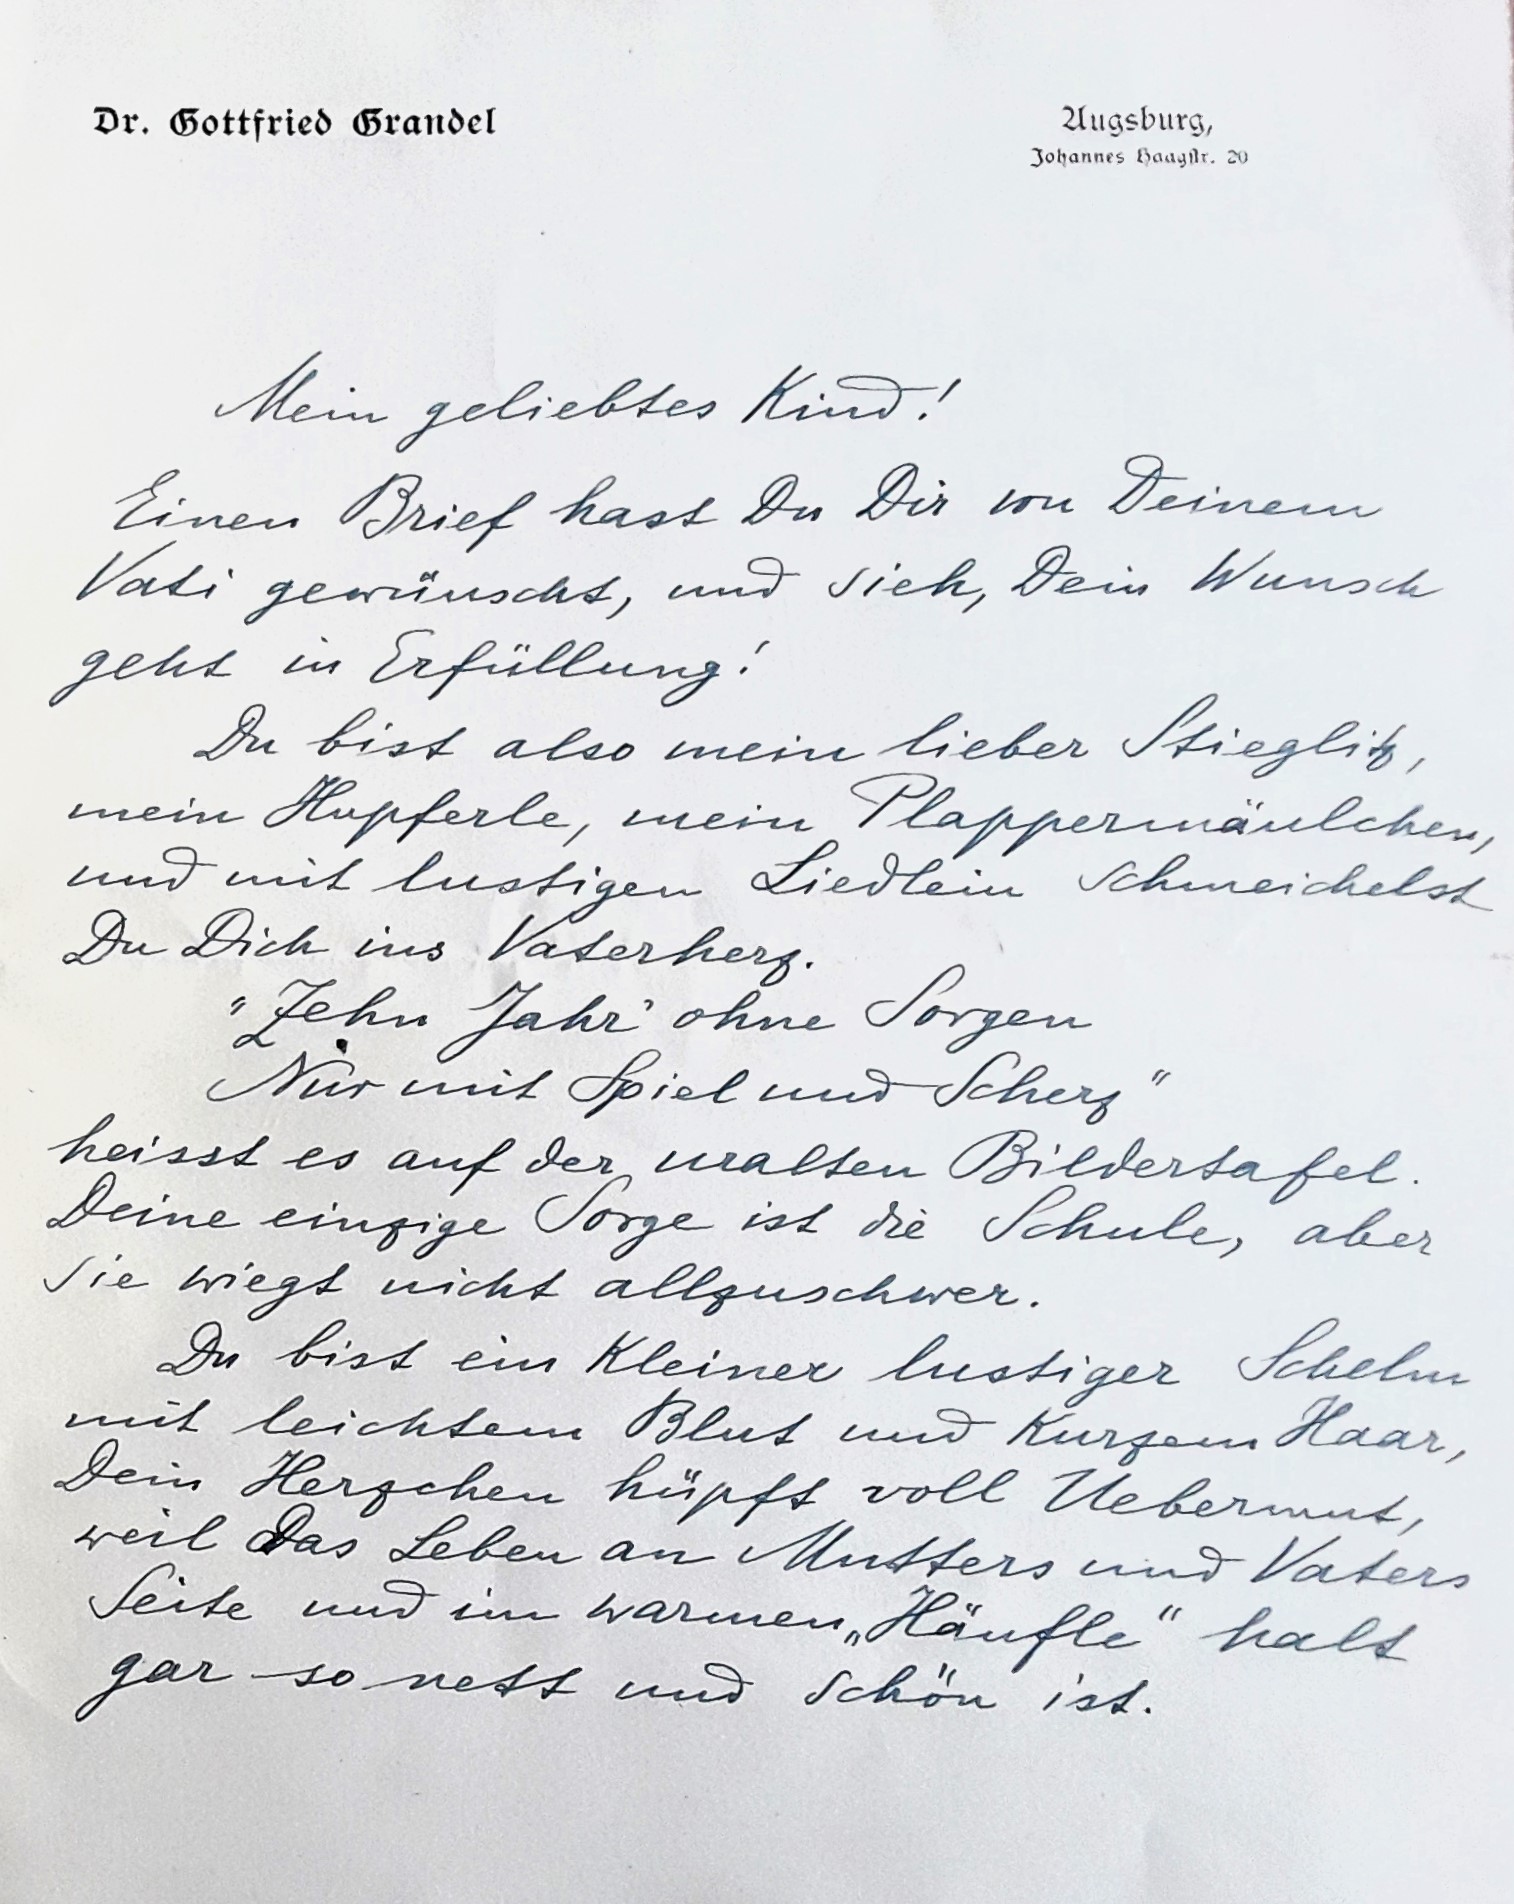 Dr. Gottfried Grandel
Augsburg,
Johannes Haagstr. 20
Mein geliebtes Kind!
Einen Brief hast Du Dir von Deinem
Vati gewünscht, und sieh, Dein Wunsch
geht in Erfüllung!
Du bist also mein lieber Stieglitz,
mein Hupferle, mein Plappermäulchen,
und mit lustigen Liedlein schmeichelst
Du Dich ins Vaterherz.
"Zehn Jahr' ohne Sorgen
Nur mit Spiel und Scherz"
heisst es auf der uralten Bildertafel.
Deine einzige Sorge ist die Schule, aber
sie wiegt nicht allzuschwer.
Du bist ein kleiner lustiger Schelm
mit leichtem Blut und kurzem Haar,
Dein Herzchen hüpft voll Uebermut,
weil das Leben an Mutters und Vaters
Seite und im warmen „Häufle" halt
gar so nett und schön ist.